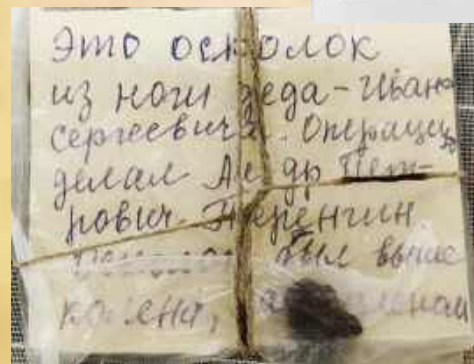 Это осколок
из ноги деда - Ивана
Сергеевича. Операцию
делал Ал-др Пет-
рович
был выше
колена,